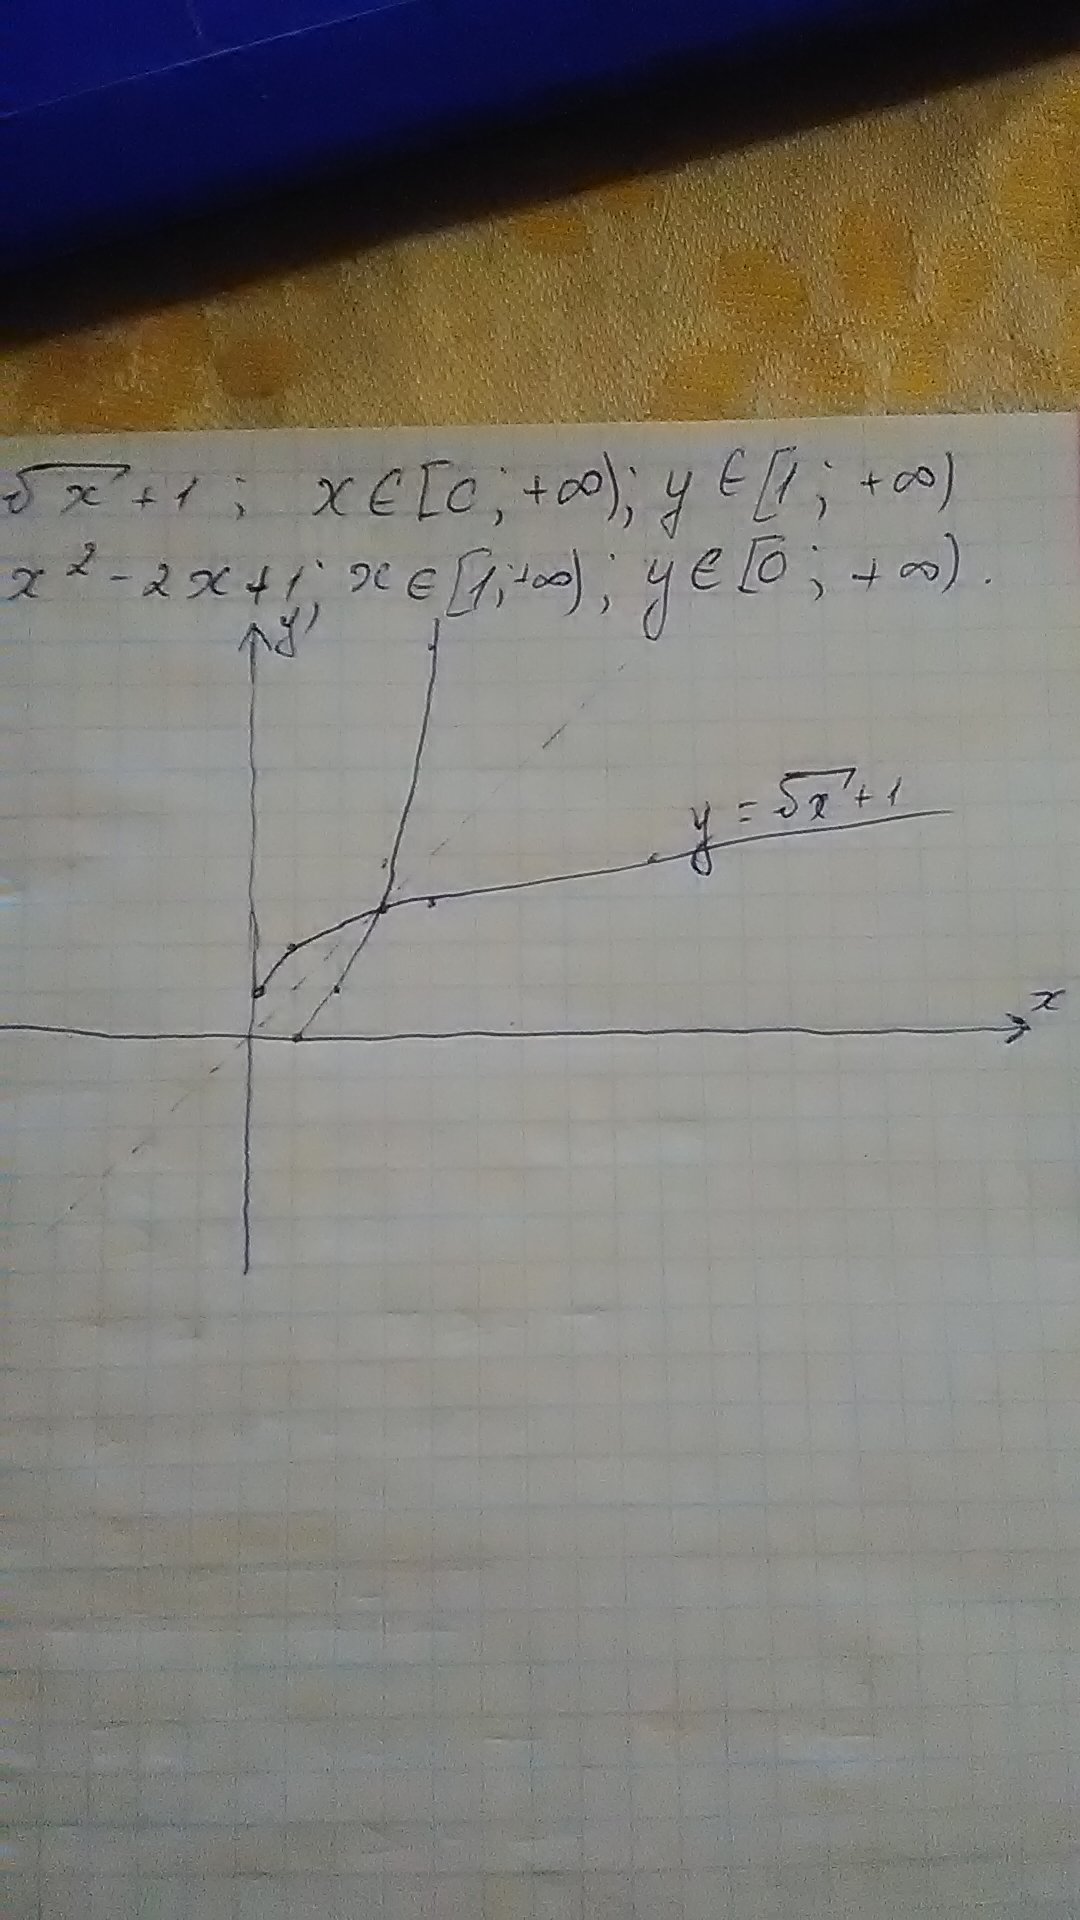 √x + 1 ; x ∈ [0 ; +∞) ; y ∈ [1 ; +∞)
x² - 2x + 1 ; x ∈ [1 ; +∞) ; y ∈ [0 ; +∞) .
y
y = √x + 1
x